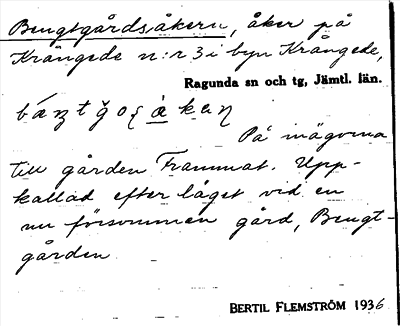 Bengtgårdsåkern, åker på
Krångede n:r 3 i byn Krångede,
Ragunda sn och tg, Jämtl. län.
På ägorna
till gården Frammat. Upp-
kallad efter läget vid en
nu försvunnen gård, Bengt-
gården
BERTIL FLEMSTRÖM 1936